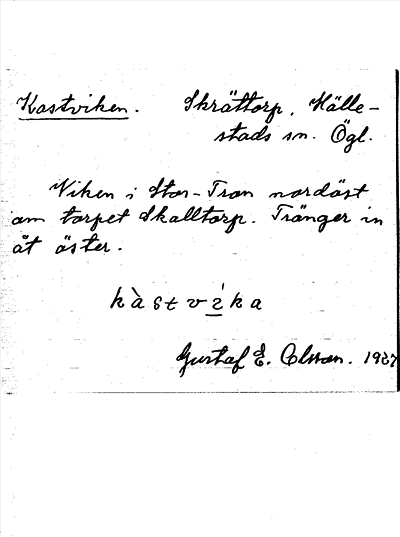 Kastviken. Skrättorp, Hälle-
stads sn. Ögl.
Viken i Stor-Tron nordöst
om torpet Skalltorp. Tränger in
åt öster.
kàstvíka
Gustaf E. Olsson. 1927